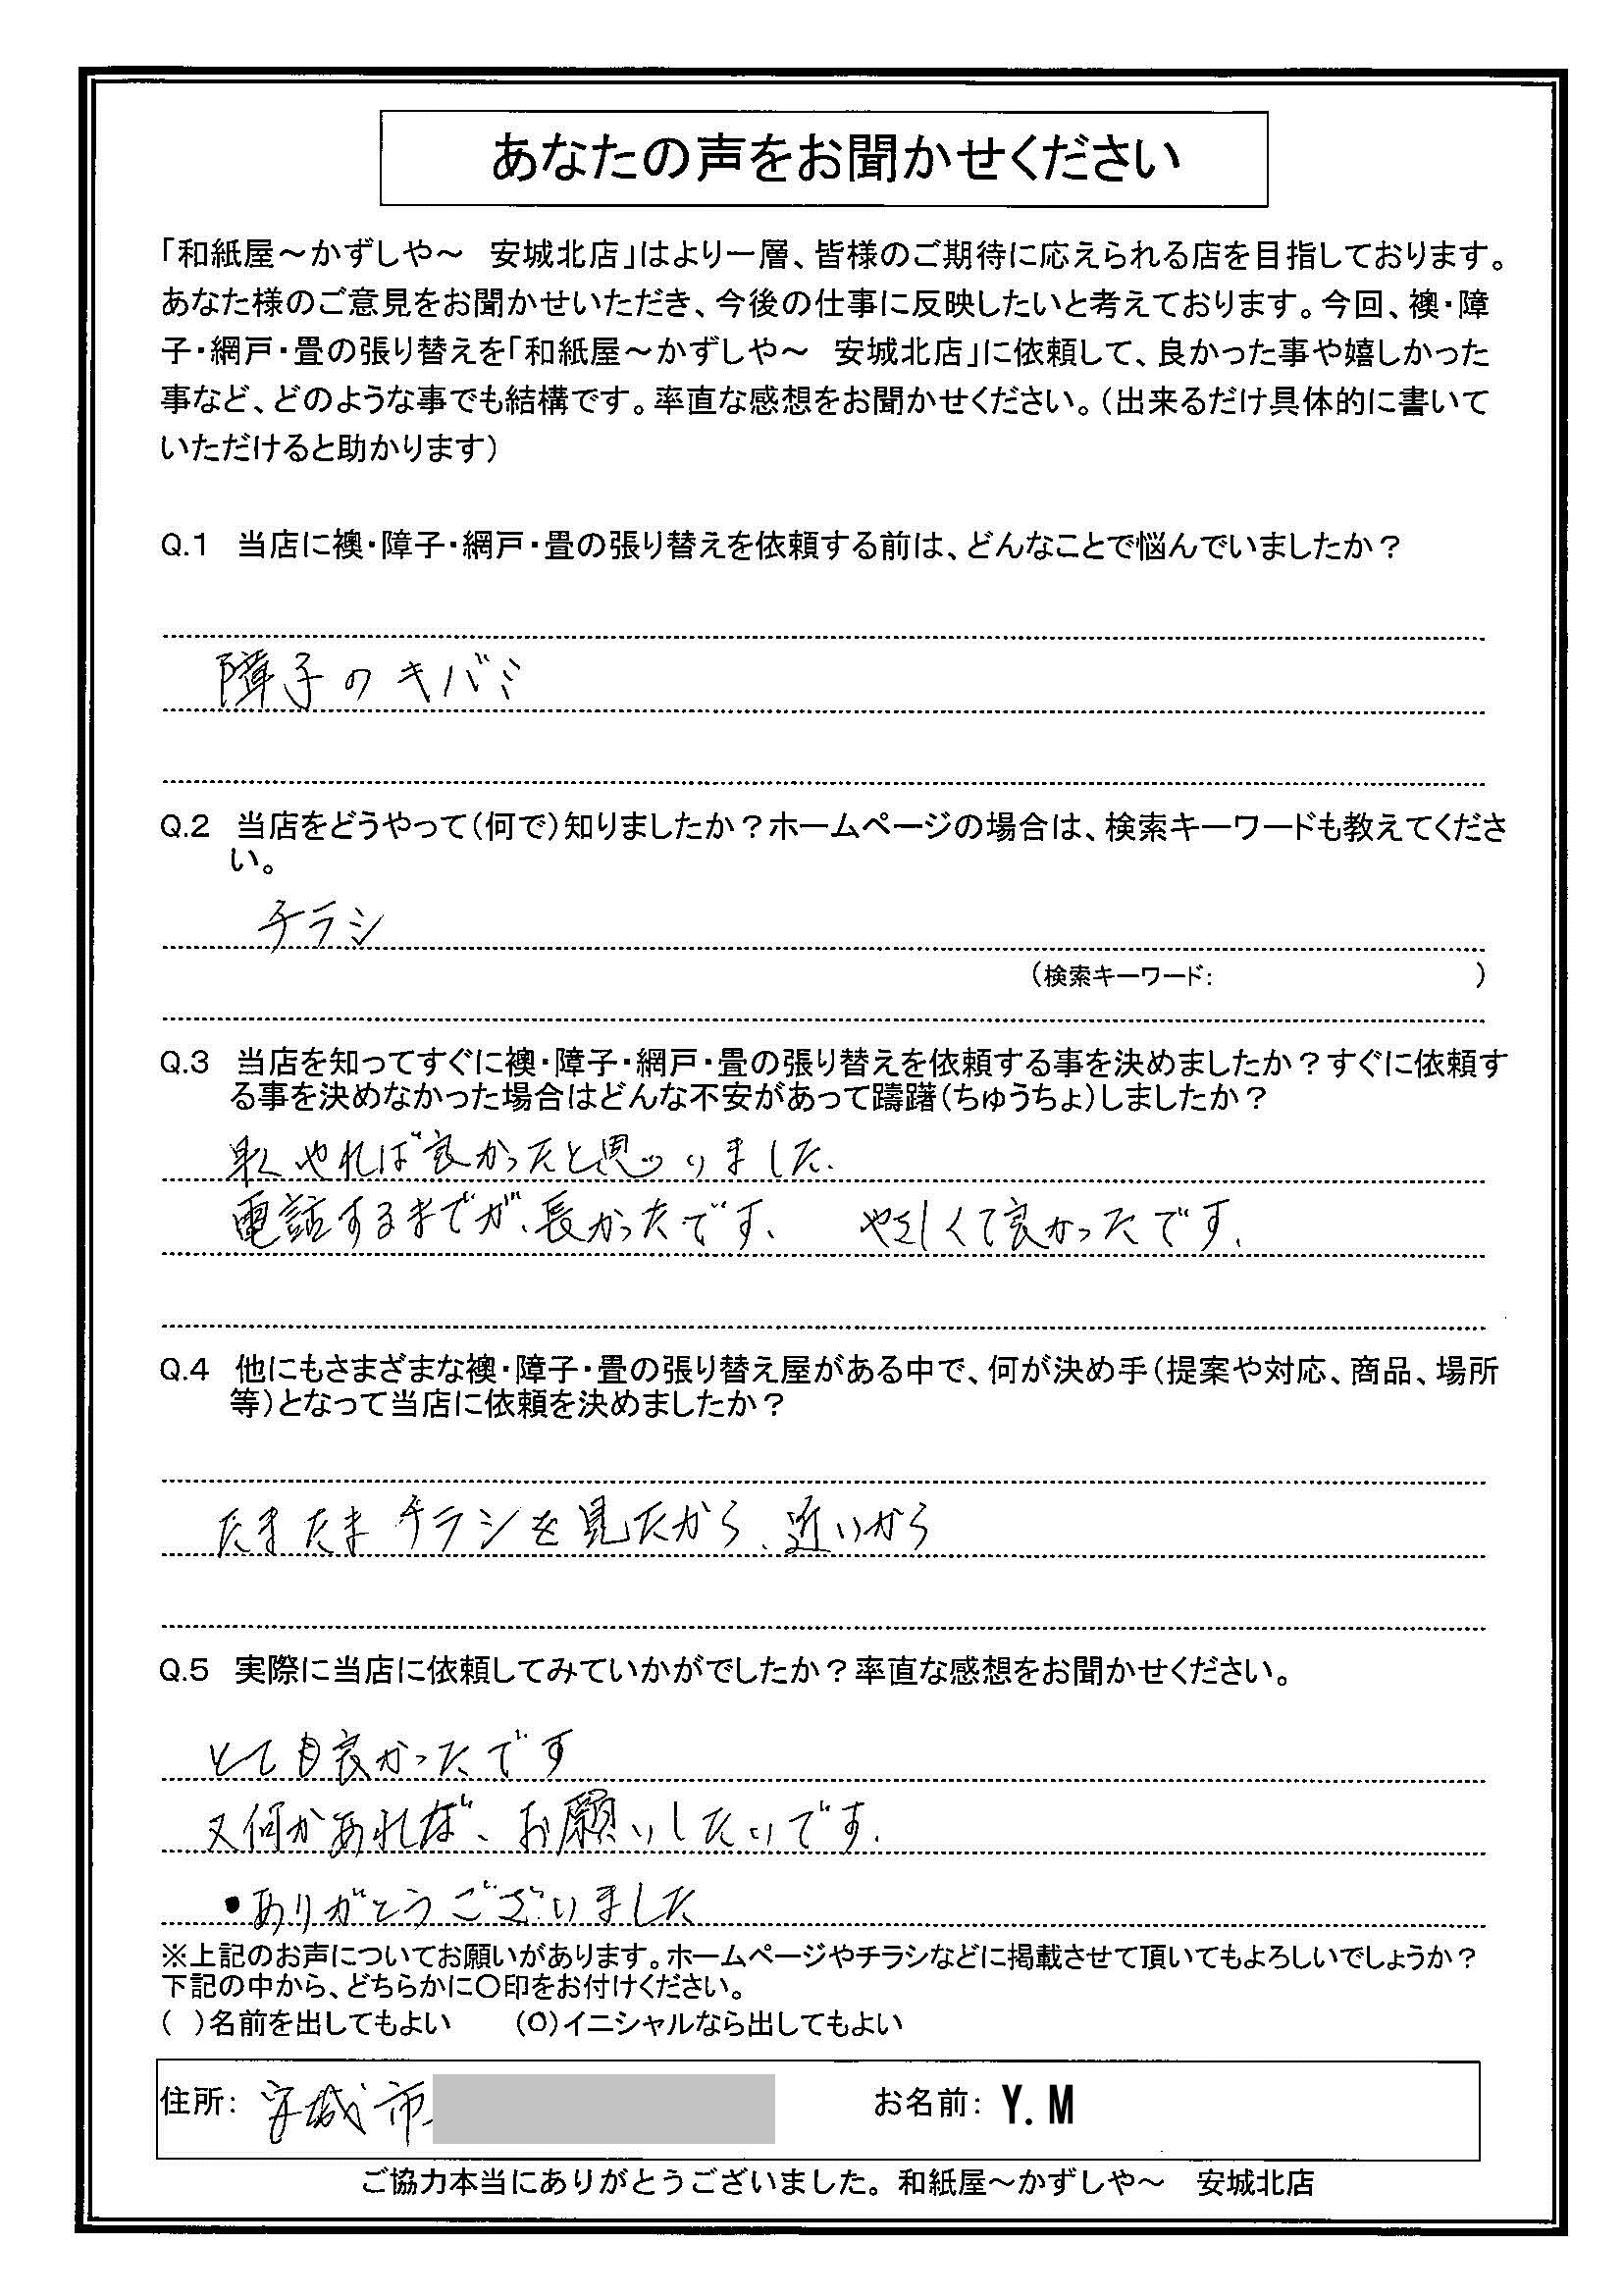 あなたの声をお聞かせください
「和紙屋～かずしや～　安城北店」はより一層、皆様のご期待に応えられる店を目指しております。
あなた様のご意見をお聞かせいただき、今後の仕事に反映したいと考えております。今回、襖・障
子・網戸・畳の張り替えを「和紙屋～かずしや～　安城北店」に依頼して、良かった事や嬉しかった
事など、どのような事でも結構です。率直な感想をお聞かせください。（出来るだけ具体的に書いて
いただけると助かります）
Q.1　当店に襖・障子・網戸・畳の張り替えを依頼する前は、どんなことで悩んでいましたか？
障子のキバミ
Q.2　当店をどうやって（何で）知りましたか？ホームページの場合は、検索キーワードも教えてくださ
い。
チラシ
（検索キーワード：　　　　　　　　　）
Q.3　当店を知ってすぐに襖・障子・網戸・畳の張り替えを依頼する事を決めましたか？すぐに依頼す
る事を決めなかった場合はどんな不安があって躊躇（ちゅうちょ）しましたか？
やれば良かったと思いました.
電話するまでが、長かったです、　やさしくて良かったです.
Q.4　他にもさまざまな襖・障子・畳の張り替え屋がある中で、何が決め手（提案や対応、商品、場所
等）となって当店に依頼を決めましたか？
たまたまチラシを見たから、近いから
Q.5　実際に当店に依頼してみていかがでしたか？率直な感想をお聞かせください。
とても良かったです
又何かあれば、お願いしたいです.
・ありがとうございました
※上記のお声についてお願いがあります。ホームページやチラシなどに掲載させて頂いてもよろしいでしょうか？
下記の中から、どちらかに〇印をお付けください。
（　）名前を出してもよい　　（〇）イニシャルなら出してもよい
住所：安城市　　お名前：Y.M
ご協力本当にありがとうございました。和紙屋～かずしや～　安城北店